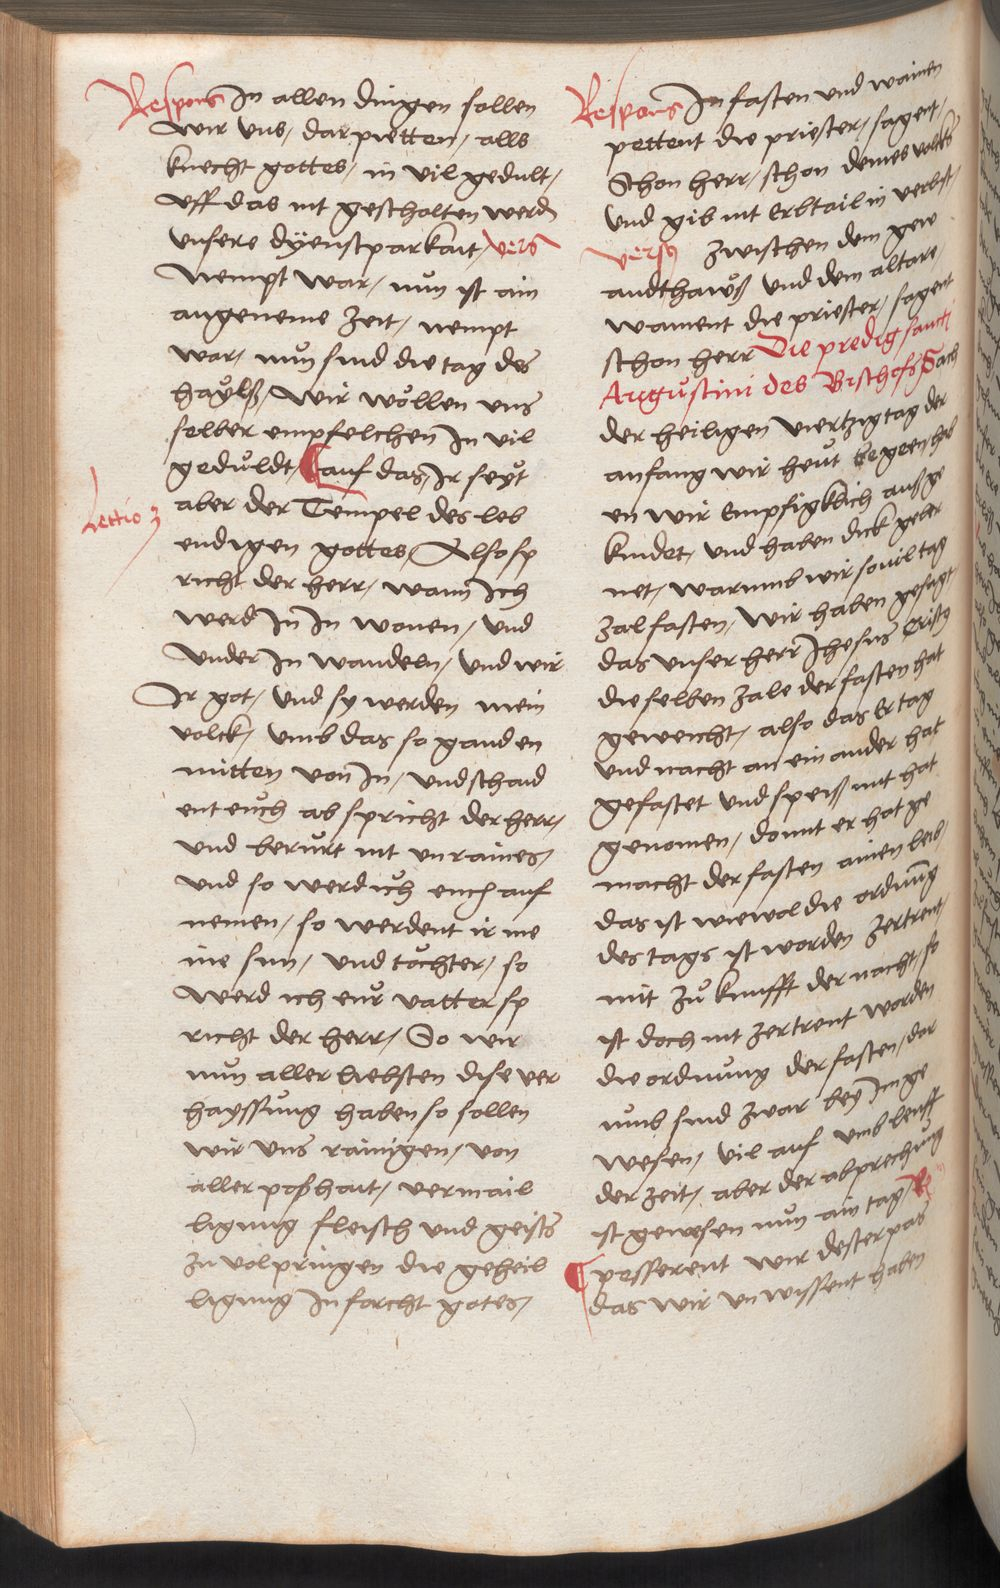 Respons In allen dingen sollen
wir uns / darpietten / alls
knecht gottes / in vil gedult /
Uff das nit gescholten werd
unsere dyenstparkait / vers
Nempt war / nun ist ain
angeneme zeit / nempt
war / nun sind die tag des
haylß / wir wöllen uns
selber empfelchen In vil
geduldt / auf das / Ir seyt
Lectio 3
aber der Tempel des leb
endigen gottes / Also sp
richt der herr / wann Ich
werd In In wonen / und
under In wandeln / und wir
Ir got / und sy werden mein
volck / umb das so gand en
mitten von In / und schaid
ent euch ab spricht der herr /
und berürt nit unraines /
und so werd ich euch auf
nemen / so werdent ir me
ine sun / und töchter / so
werd ich eur vatter sp
richt der herr / So wir
nun aller liebsten dise ver
hayssung haben so sollen
wir uns rainigen / von
aller poßhait / vermail
ligung fleisch und geists
zu volpringen die geheil
ligung In forcht gotes /
Respons In fasten und wainen
pettent die priester / sagent /
Schon herr / schon deines volcks
und gib nit Erbtail in verlust /
Versus zwischen dem gew
andthawß und dem altare /
wainent die priester / sagent
schon herr Die predig sancti
Augustini des Bischofs Nach
der heiligen viertzig tag der
anfang wir heut begeen hab
en wir Empsigklich auß ge
kindet / und haben dick geler
net / warumb wir sovil tag
zal fasten / wir haben gesagt
das unser herr Ihesus Cristus
die selben zale der fasten hat
geweicht / also das Er tag
und nacht an ein ander hat
gefastet und speiß nit hat
genomen / domit er hat ge
macht der fasten ainen leib /
das ist wiewol die ordnung
des tags ist worden zertrent /
mit zu kunfft der nacht / so
ist doch nit zertrent worden
die ordnung der fasten / dar
umb sind zwar bey Im ge
wesen / vil auf umb leuff
der zeit / aber der abprechung
ist gewesen nun ain tag / Re
pesserent wir dester pas
das wir unwissent haben